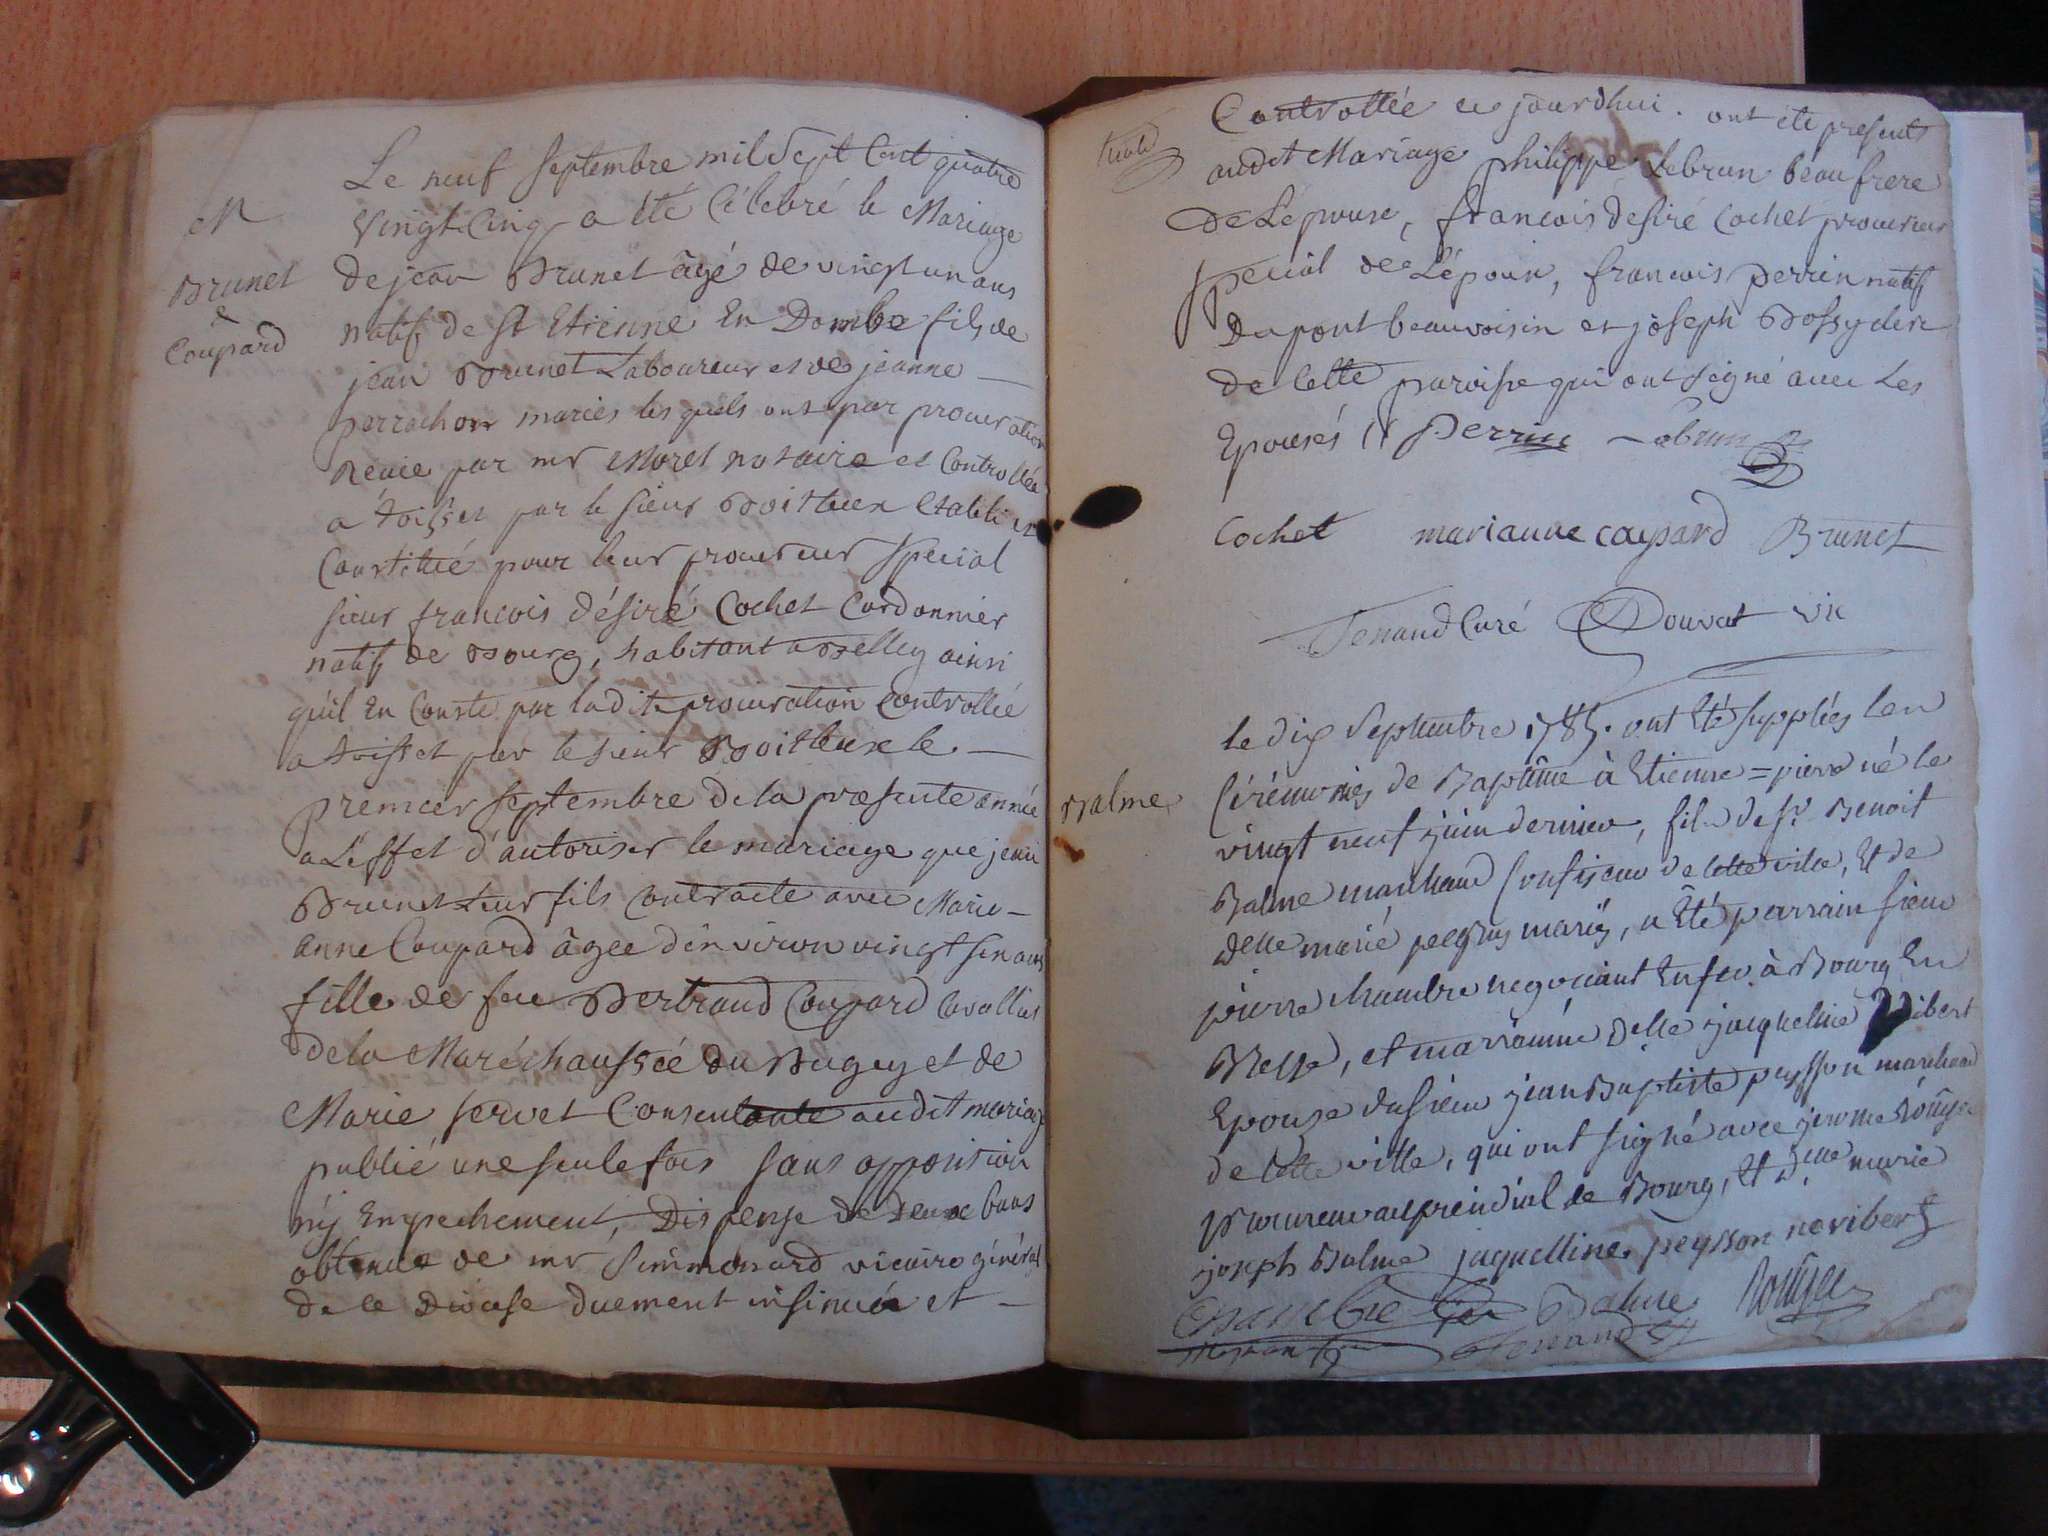 M
Brunet
&
Coupard
Le neuf septembre mil Sept Cent quatre
Vingt Cinq a été Célebré le Mariage
de jean Brunet âgé de vingt un ans
natif de St Etienne En Dombe fils de
jean Brunet Laboureur et de jeanne
perrachon mariés les quels ont par procuration
Reçue par mr Moret notaire et Controllée
a toissei par le sieur Boitteux Etabli et
Constitué pour leur procureur Special
sieur francois désiré Cochet Cordonnier
natif de Bourg, habitant a Belley ainsi
qu'il En Conste par ladite procuration Controllée
a toisset par le sieur Boitteux le
premier septembre de la presente année
a L'effet d'autoriser le mariage que jean
Brunet Leur fils Contracte avec Marie
Anne Coupard âgée d'environ vingt six ans
fille de feu Bertrand Coupard Cavallier
de la Maréchaussée du Bugey et de
Marie servet Consentante audit mariage
publié une seule fois sans opposition
n'y Empechement, Dispense de deux bans
obtenue de mr Simmonard vicaire général
de ce Diocese duement insinuée et
Controllée ce jourdhui. ont été presents
audit Mariage philippe Lebrun beau frere
de Lépouse, francois desiré Cochet procureur
special de L'époux, francois perrin natif
du pont beauvoisin et joseph Bossy clerc
de Cette paroisse qui ont signé avec Les
Epousés Perrin Lebrun
Cochet marianne coupard Brunet
Tenand Curé Douvat vic
Balme
le dix Septembre 1785. ont Eté supplées les
Cérémonies de Baptême à Etienne=pierre né le
vingt neuf juin dernier, fils de sr. Benoit
Balme marchand Confiseur de Cette ville, Et de
delle marie peysson mariés, a Eté parrain sieur
pierre chambre negociant En fer à Bourg En
Bresse, et marraine delle jacqueline Vibert
Epouse du sieur jean Baptiste peysson marchand
de Cette ville, qui ont signé avec jerome Rouyer
procureur au presidial de Bourg, Et Delle marie
joseph Balme jaquelline peysson ne vibert
Chambre Balme Rouyer
Tenand